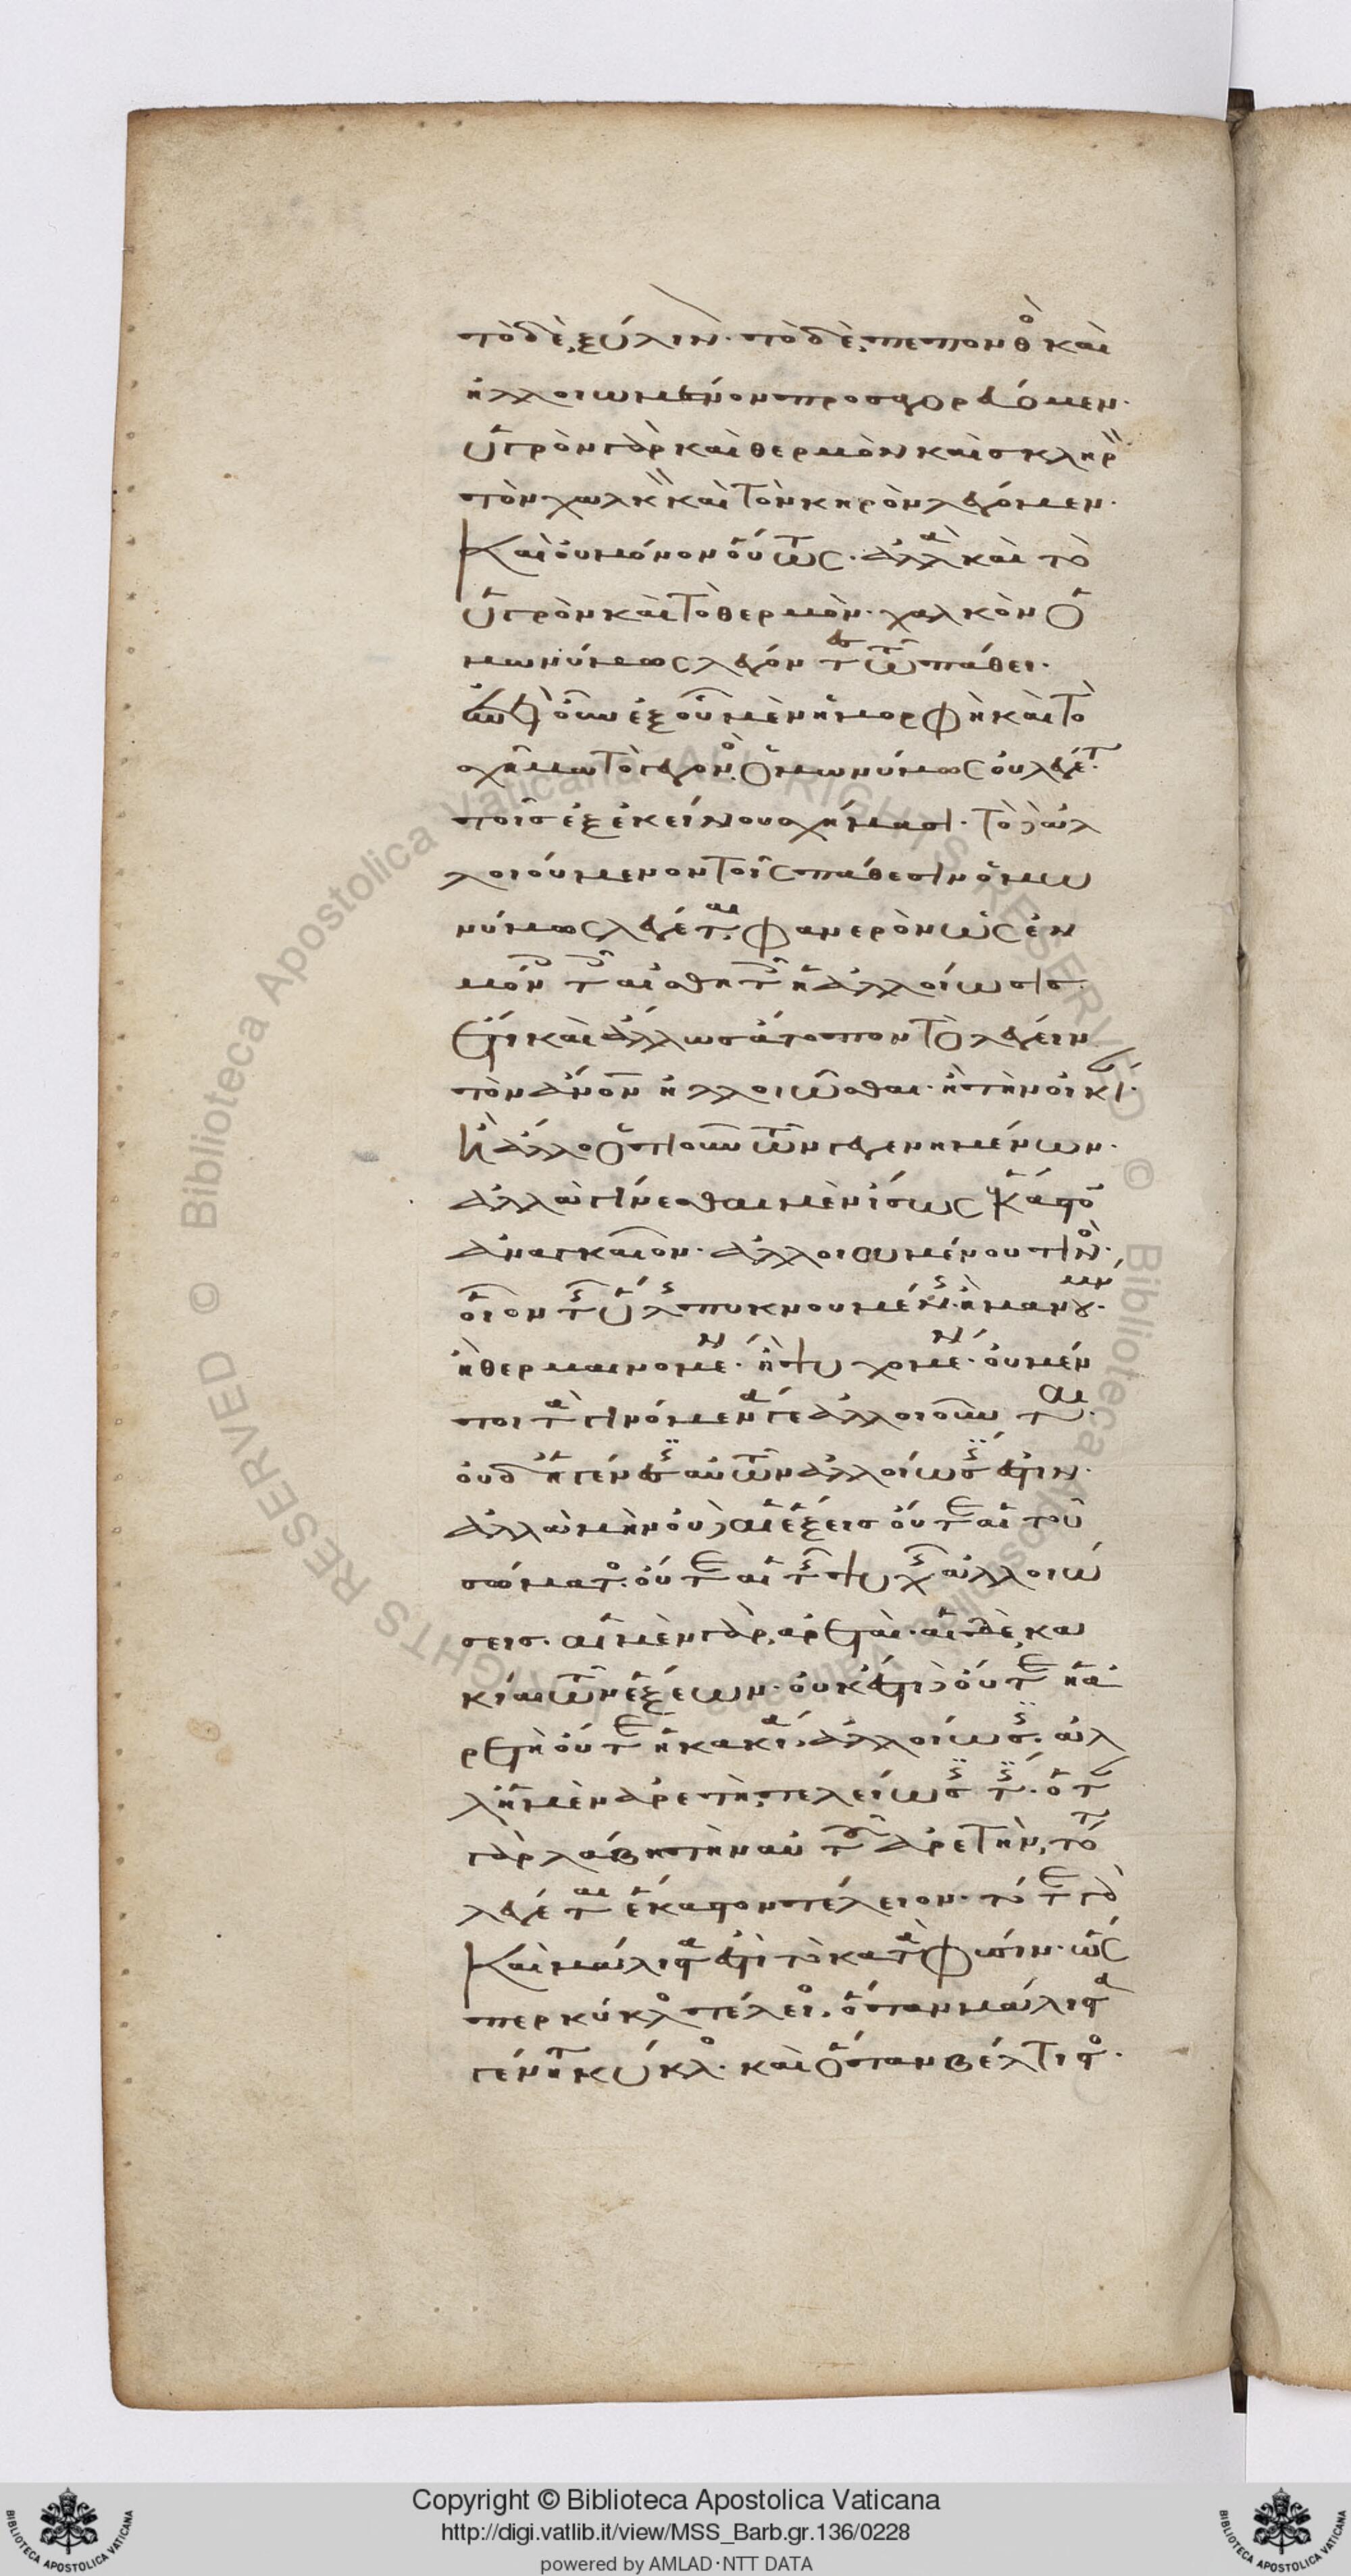 τὸ δὲ ξύλιν· τὸ δὲ πεπονθὸ καὶ
ἠλλοιωμένον προσαγορεύομεν·
ὑγρὸν γὰρ καὶ θερμὸν καὶ σκληρ
τὸν χαλκ καὶ τὸν κηρὸν λέγομεν·
Καὶ οὐ μόνον οὕτως· ἀλλὰ καὶ τὸ
ὑγρὸν καὶ τὸ θερμὸν· χαλκὸν ὁ
μωνύμως λέγον τ τῶ πάθει·
ἐξ οὗ μὲν ἡ μορφὴ καὶ τὸ
σχῆμα τὸ γεγον ὁμωνύμως οὐ λέγετ
τοῖς ἐξ ἐκείνου σχήμασι· τὸ δ ἀλ
λοιούμενον τοῖς πάθεσιν ὁμω
νύμως λέγεται φανερὸν ὡς ἐν
μόν τ αἰσθητ ἡ ἀλλοίωσις
ἔτι καὶ ἄλλως ἄτοπον τὸ λέγειν
τὸν ἄνον ἠλλοιῶσθαι· ἢ τὴν οἰκί·
ἢ ἄλλο ὁτιοῦν τῶν γεγενημένων·
ἀλλὰ γίνεσθαι μὲν ἴσως ἕκαστο
ἀναγκαῖον· ἀλλοιουμένου τιν·
οἷον τῆς ὕλης πυκνουμένης· ἢ μανουμν·
ἢ θερμαινομεν· ἢ ψυχομεν· οὐ μέν
τοι τὰ γινόμενά γε ἀλλοιοῦται·
οὐδ ἡ γένεσις αὐτῶν ἀλλοίωσίς ἐστιν·
ἀλλὰ μὴν οὐδ αἱ ἕξεις οὔτε αἱ τοῦ
σώματο· οὔτε αἱ τῆς ψυχῆς ἀλλοιώ
σεις· αἱ μὲν γὰρ ἀρεταὶ· αἱ δὲ κα
κίαι τῶν ἕξεων· οὐκ ἔστι δ οὔτε ἡ ἀ
ρετὴ οὔτε ἡ κακία ἀλλοίωσις· ἀλ
λ ἡ μὲν ἀρετὴ τελείωσίς τις· ὅτ
γὰρ λάβη τὴν αὐτοῦ ἀρετὴν, τότ
λέγεται ἕκαστον τέλειον· τότε γὰ
Καὶ μάλιστα ἐστὶ τὸ κατὰ φύσιν· ὥσ
περ κύκλο τέλειο· ὅταν μάλιστα
γένηται κύκλο· καὶ ὅταν βέλτιστο·